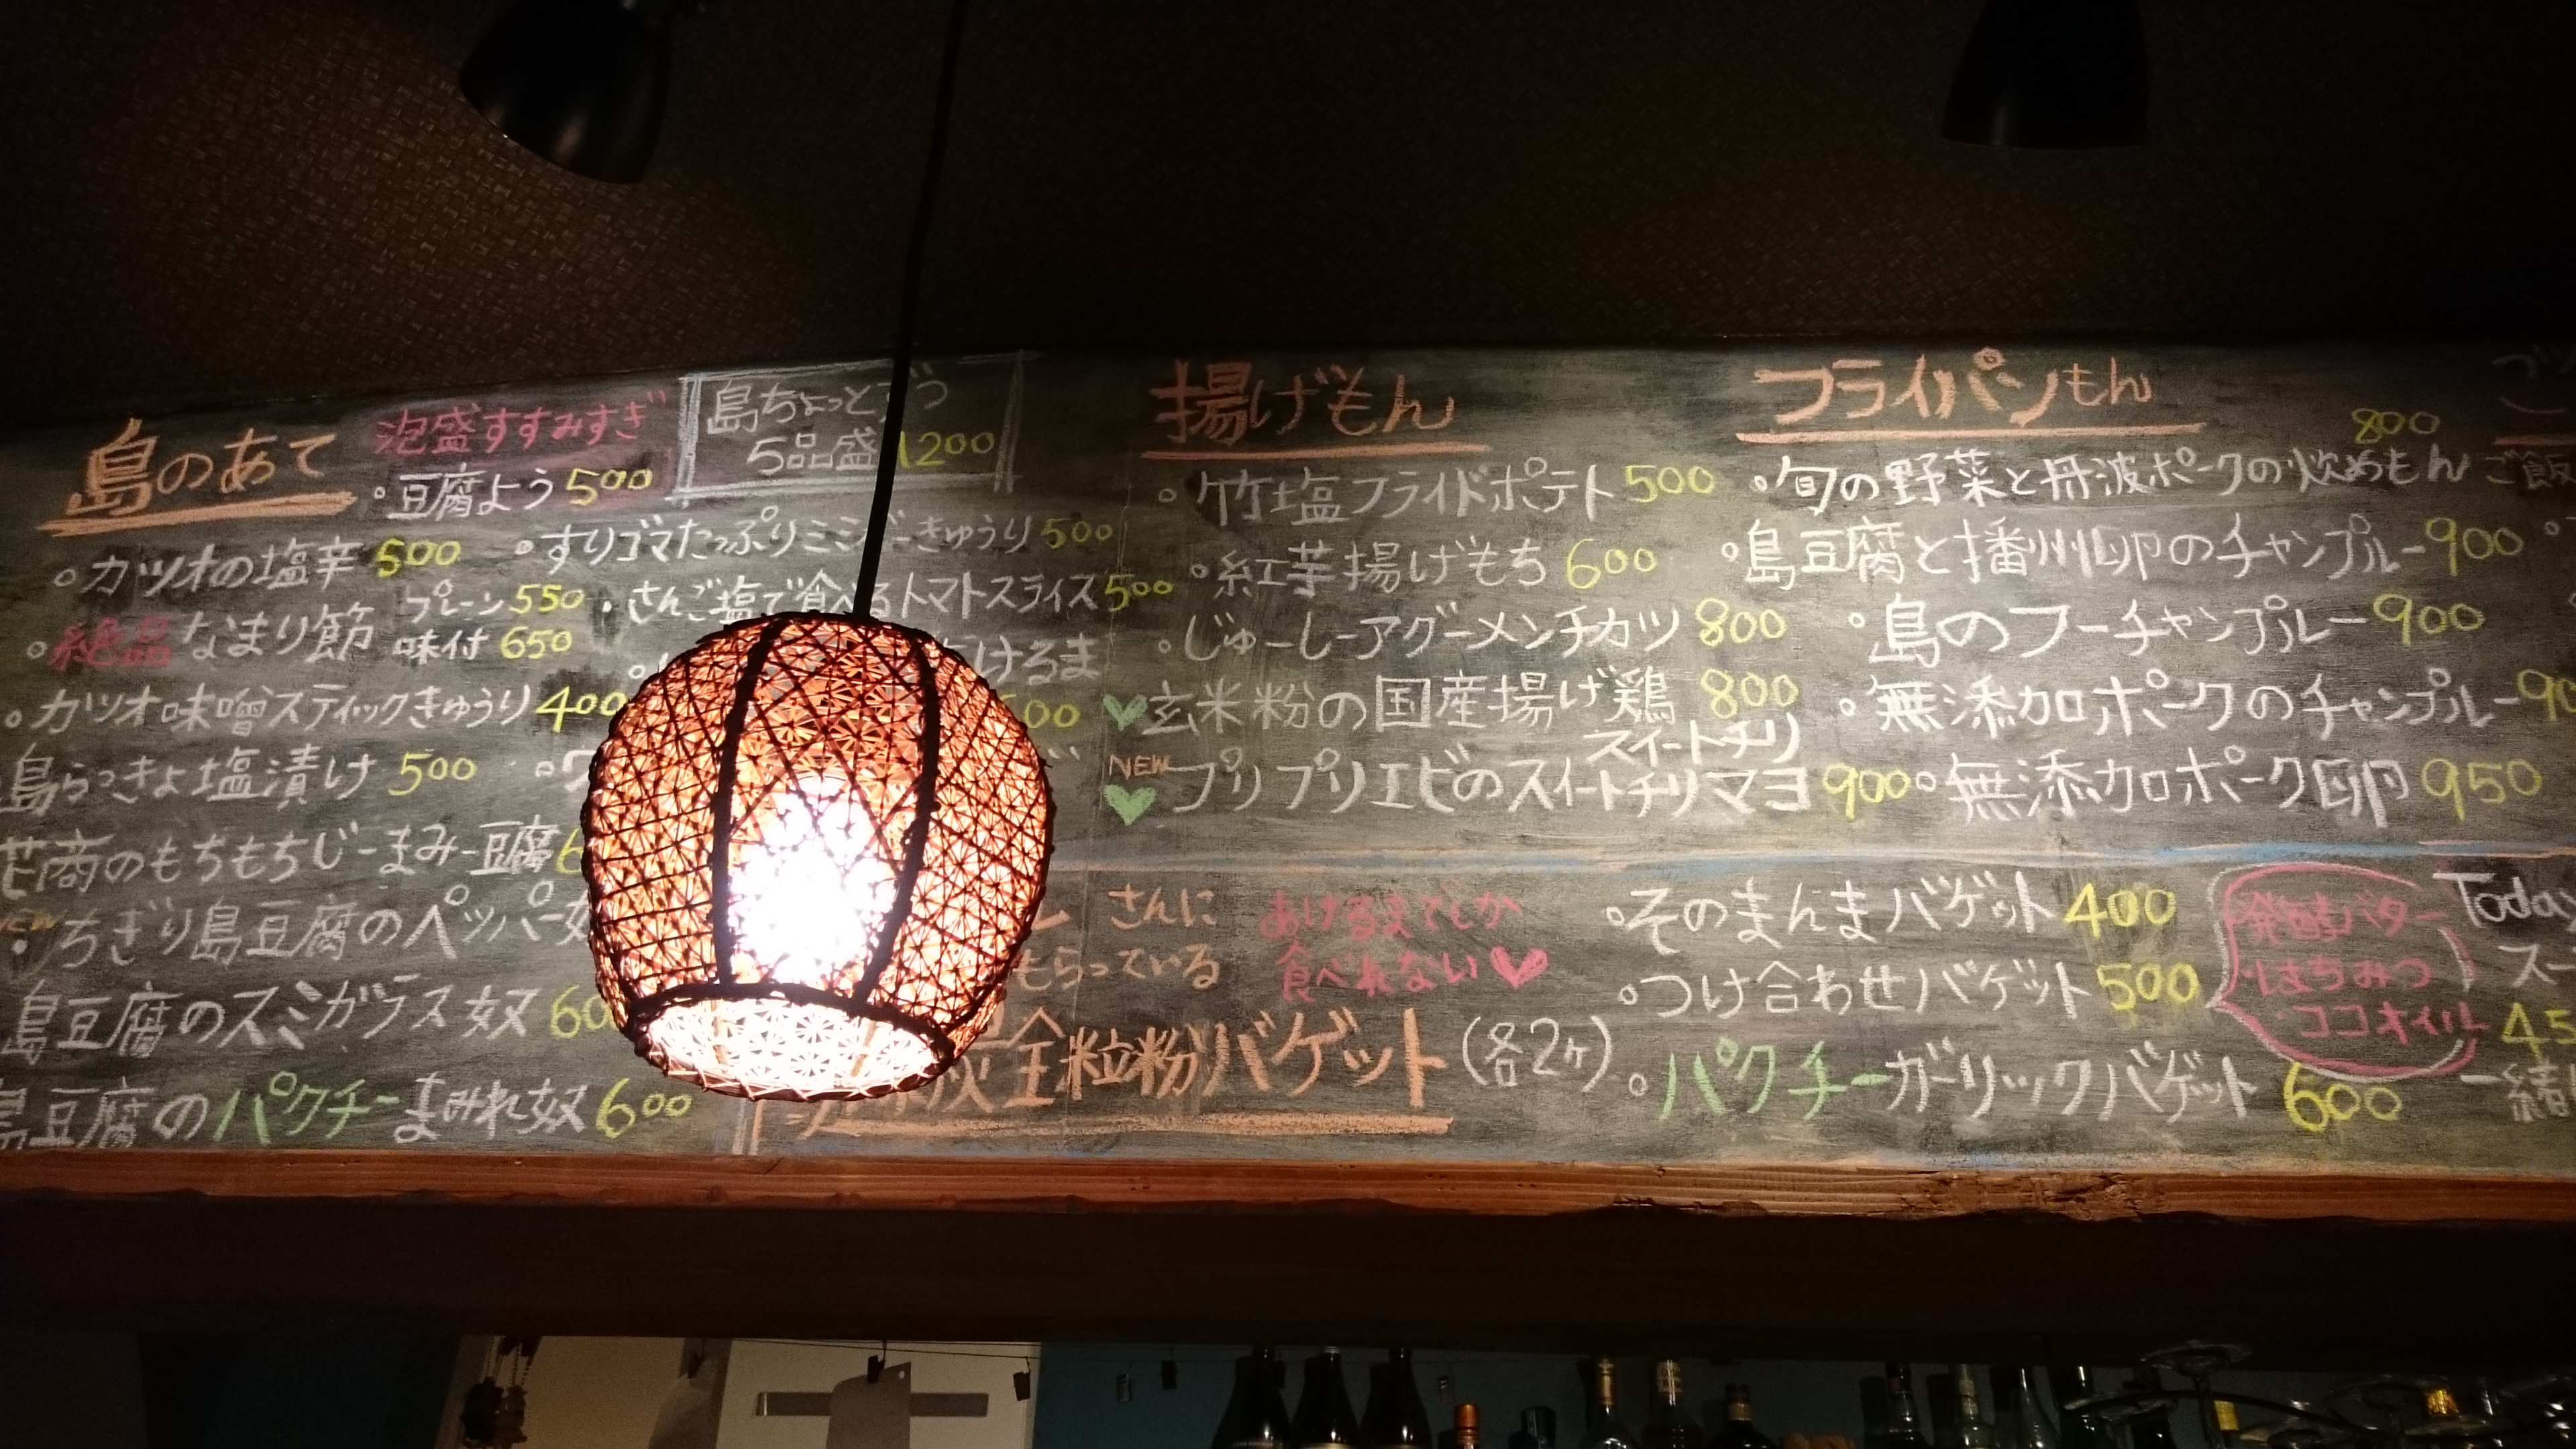 島のあて
泡盛すすみすぎ
豆腐よう 500
島ちょっとずつ
5品盛 1200
カツオの塩辛 500
絶品 なまり節 プレーン 550
味付 650
カツオ味噌スティックきゅうり 400
島らっきょ塩漬け 500
商のもちもちじーまみー豆腐 6
NEW
ちぎり島豆腐のペッパー奴
島豆腐のスミガラス奴 60
島豆腐のパクチーまみれ奴 600
すりゴマたっぷりミミジャーきゅうり 500
さんご塩で食べるトマトスライス 500
けるま
00
揚げもん
竹塩フライドポテト 500
紅芋揚げもち 600
じゅーしーアグーメンチカツ 800
玄米粉の国産揚げ鶏 800
スイートチリ
NEW プリプリエビのスイートチリマヨ 900
フライパンもん
800
旬の野菜と丹波ポークの炒めもん
島豆腐と播州卵のチャンプルー 900
島のフーチャンプルー 900
無添加ポークのチャンプルー 90
無添加ポーク卵 950
ご飯
さんに
もらっている
あけるまでしか
食べれない
炭全粒粉バゲット (各2ヶ)
そのまんまバゲット 400
つけ合わせバゲット 500
パクチーガーリックバゲット 600
発酵バター
・はちみつ
・ココオイル
Today
スー
45
一緒